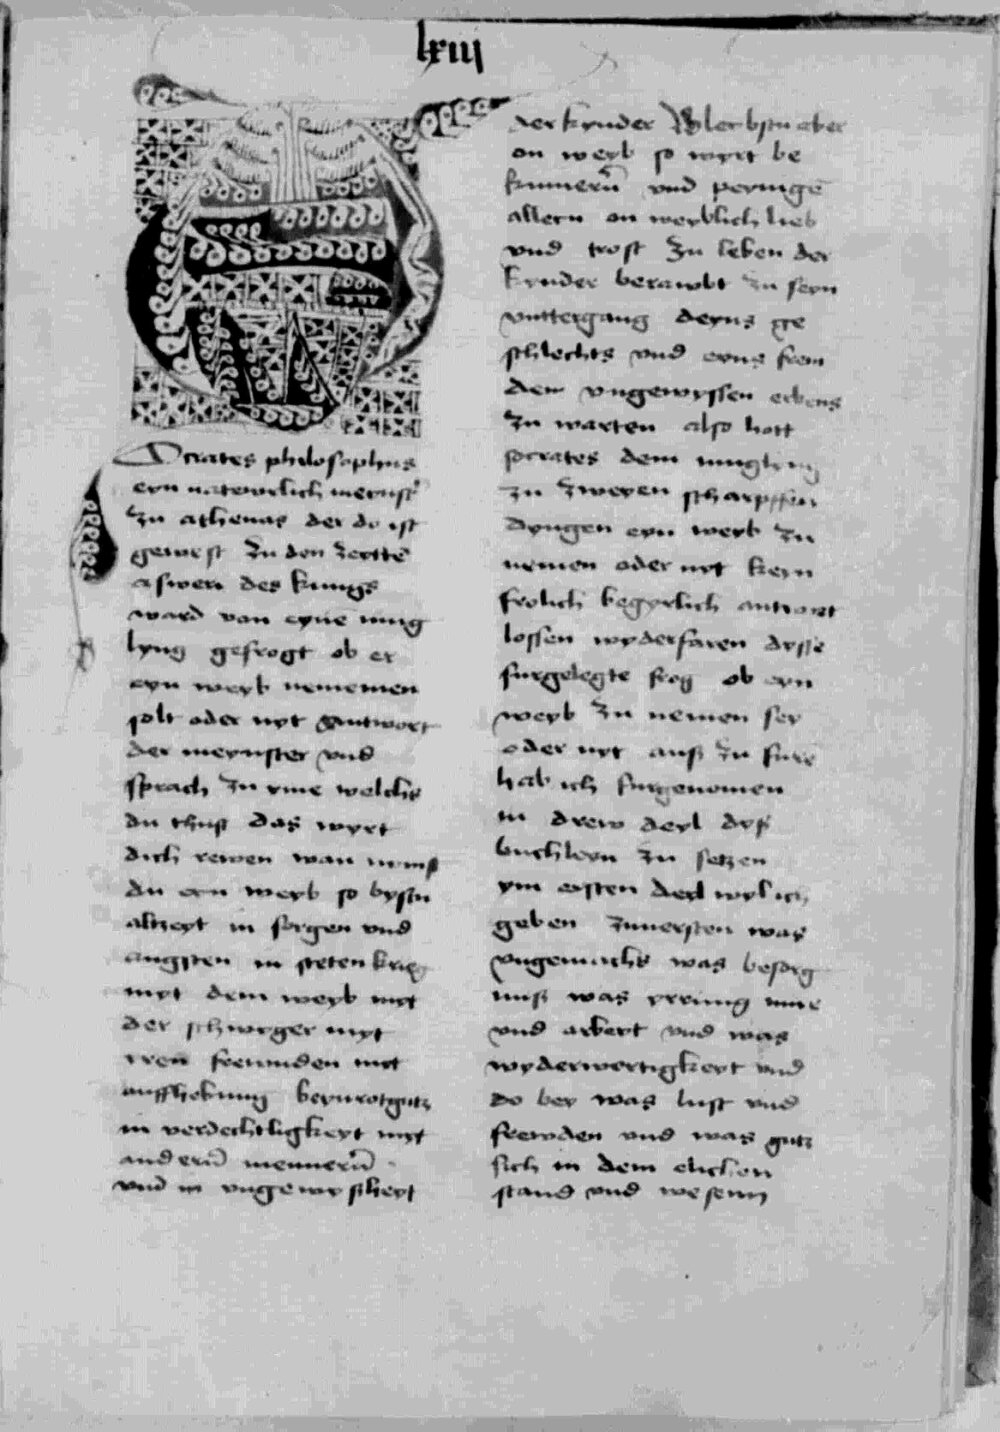 lxiij
Ocrates philosophus
eyn naturlich meinst
zu athenas der do ist
gewest zu den zeytē
aswen des kunigs
ward von eyne iung
lyng gefrogt ob er
eyn weyb nememen
solt oder nyt antwort
der meynster vnd
sprach zu yme welchs
du thust das wyrt
dich rewen wan nymst
du eyn weyb so bystu
altzeyt in sorgen vnd
angsten in steten krieg
myt dem weyb myt
der schwyger myt
iren freunden myt
auffhebung heyratgutz
in verdechtligkeyt myt
anderñ mennerñ
vnd in vngewysheyt
der kynder Bleybstu aber
on weyb so wyrt be
kumerñ vnd peynigē
alleyn on weyblich lieb
vnd trost zu leben der
kynder berawbt zu seyn
vnttergang deyns ge
schlechts vnd eyns frem
den vngewyssen erbens
zu warten also hott
socrates dem iungling
zu zweyen scharpffen
dyngen eyn weyb zu
nemen oder nyt keyn
frolich begyrlich antwort
lossen wyderfaren dysse
furgelegte frog ob eyn
weyb zu nemen sey
oder nyt auß zu furē
hab ich furgenomen
in drew deyl dyß
buchleyn zu setzen
ym ersten deyl wyl ich
geben zuuersten was
vngemachs was besorg
nuß was yrrung mue
vnd arbeyt vnd was
wyderwertigkeyt vnd
do bey was lust vnd
frewden vnd was gutz
sich in dem elichen
stand vnd wesenn